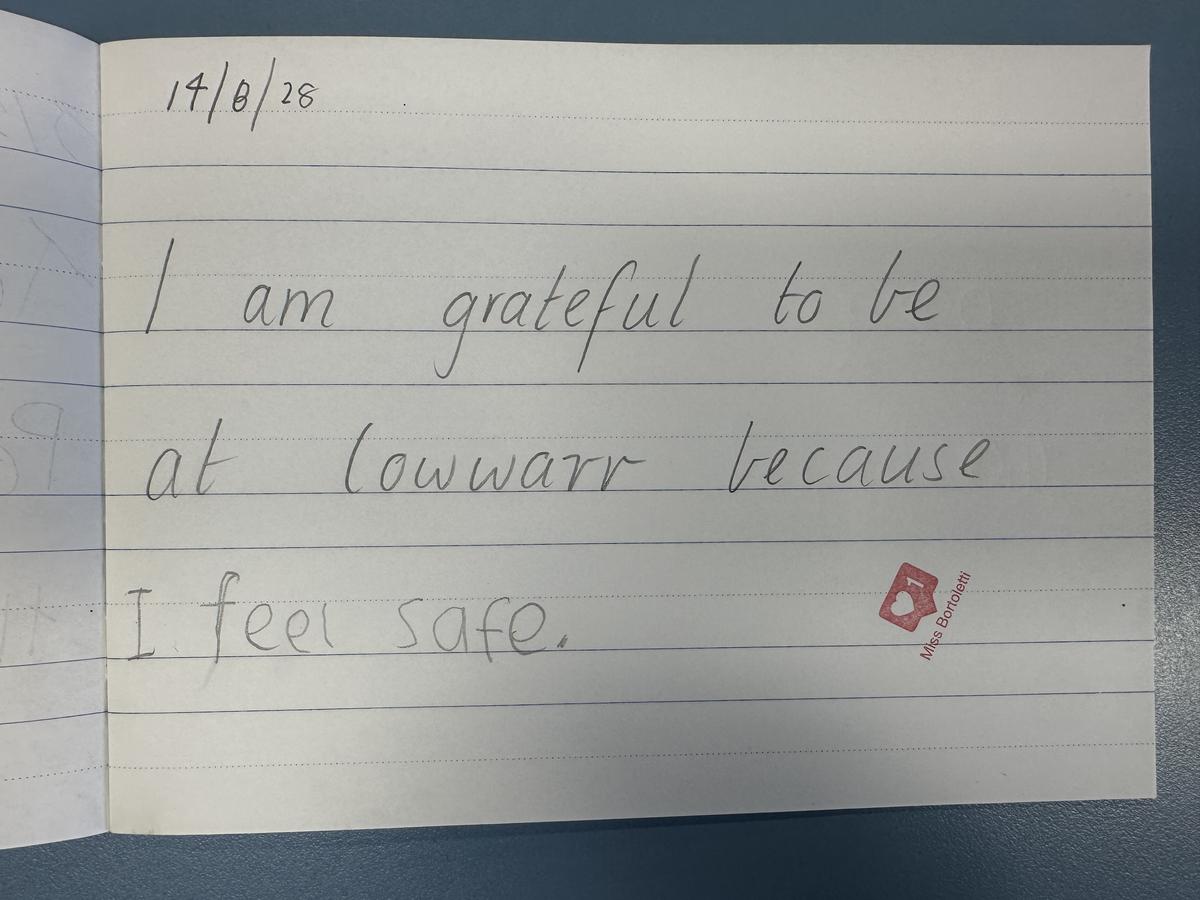 14/8/28
I am grateful to be
at lowwarr because
I feel safe.
1
Miss Bortoletti